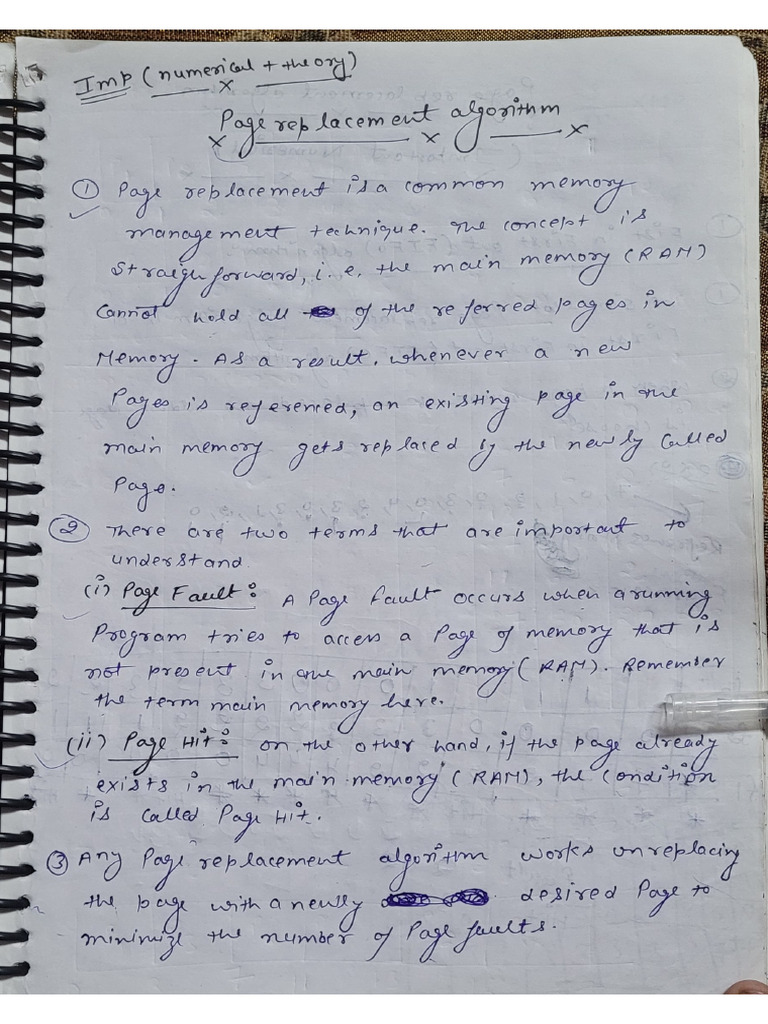 Imp (numerical + theory)
Page replacement algorithm
① Page replacement is a common memory
management technique. The concept is
straighforward, i.e. the main memory (RAM)
Cannot hold all of the referred pages in
Memory. As a result, whenever a new
Pages is referenced, an existing page in the
main memory gets replaced by the newly called
Page.
② There are two terms that are important to
understand.
(i) Page Fault: A Page fault occurs when a running
Program tries to access a Page of memory that is
not present in the main memory (RAM). Remember
the term main memory here.
(ii) Page Hit: on the other hand, if the page already
exists in the main memory (RAM), the condition
is called Page Hit.
③ Any Page replacement algorithm works on replacing
the page with a newly desired Page to
minimize the number of Page faults.